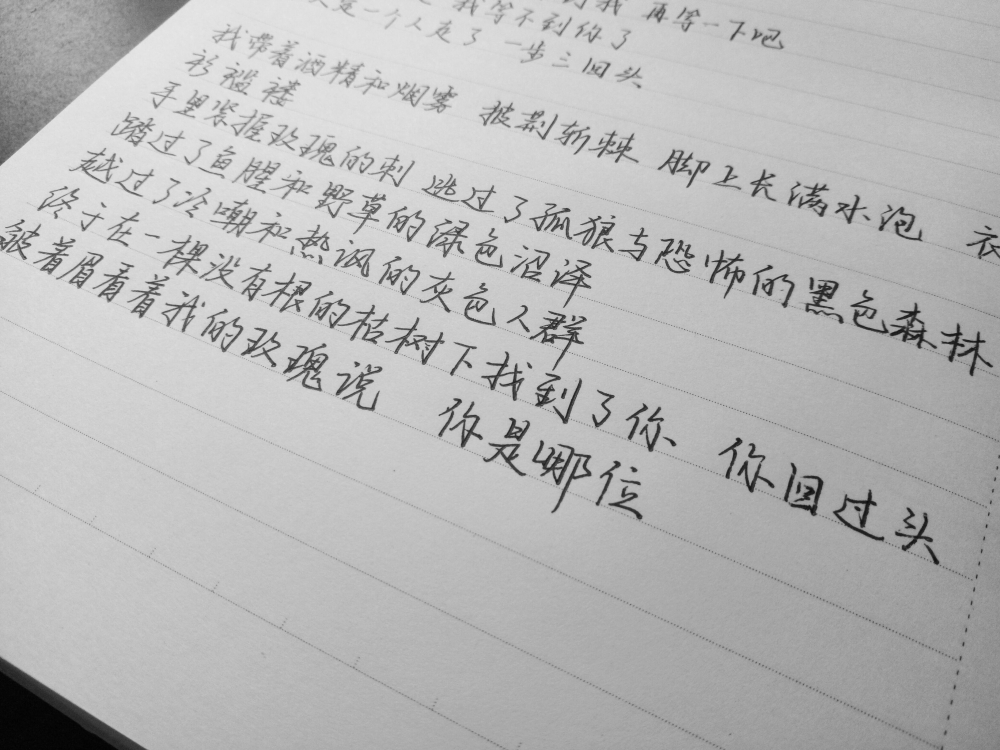 我 再等一下吧
我等不到你了
一个人走了 一步三回头
我带着酒精和烟雾 披荆斩棘 脚上长满水泡 衣
衫褴褛
手里紧握玫瑰的刺 逃过了孤狼与恐怖的黑色森林
踏过了鱼腥和野草的绿色沼泽
越过了冷嘲和热讽的灰色人群
终于在一棵没有根的枯树下找到了你、你回过头
皱着眉看着我的玫瑰说 你是哪位